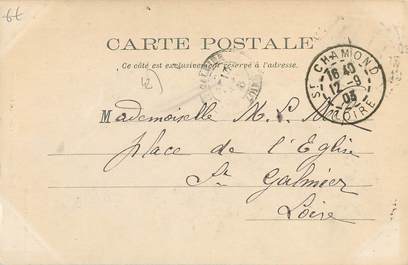 6t
CARTE POSTALE
Ce côté est exclusivement réservé à l'adresse.
42
ST CHAMOND
16 40
12-9
03
LOIRE
Mademoiselle M. L.
place de l'Eglise
St Galmier
Loire